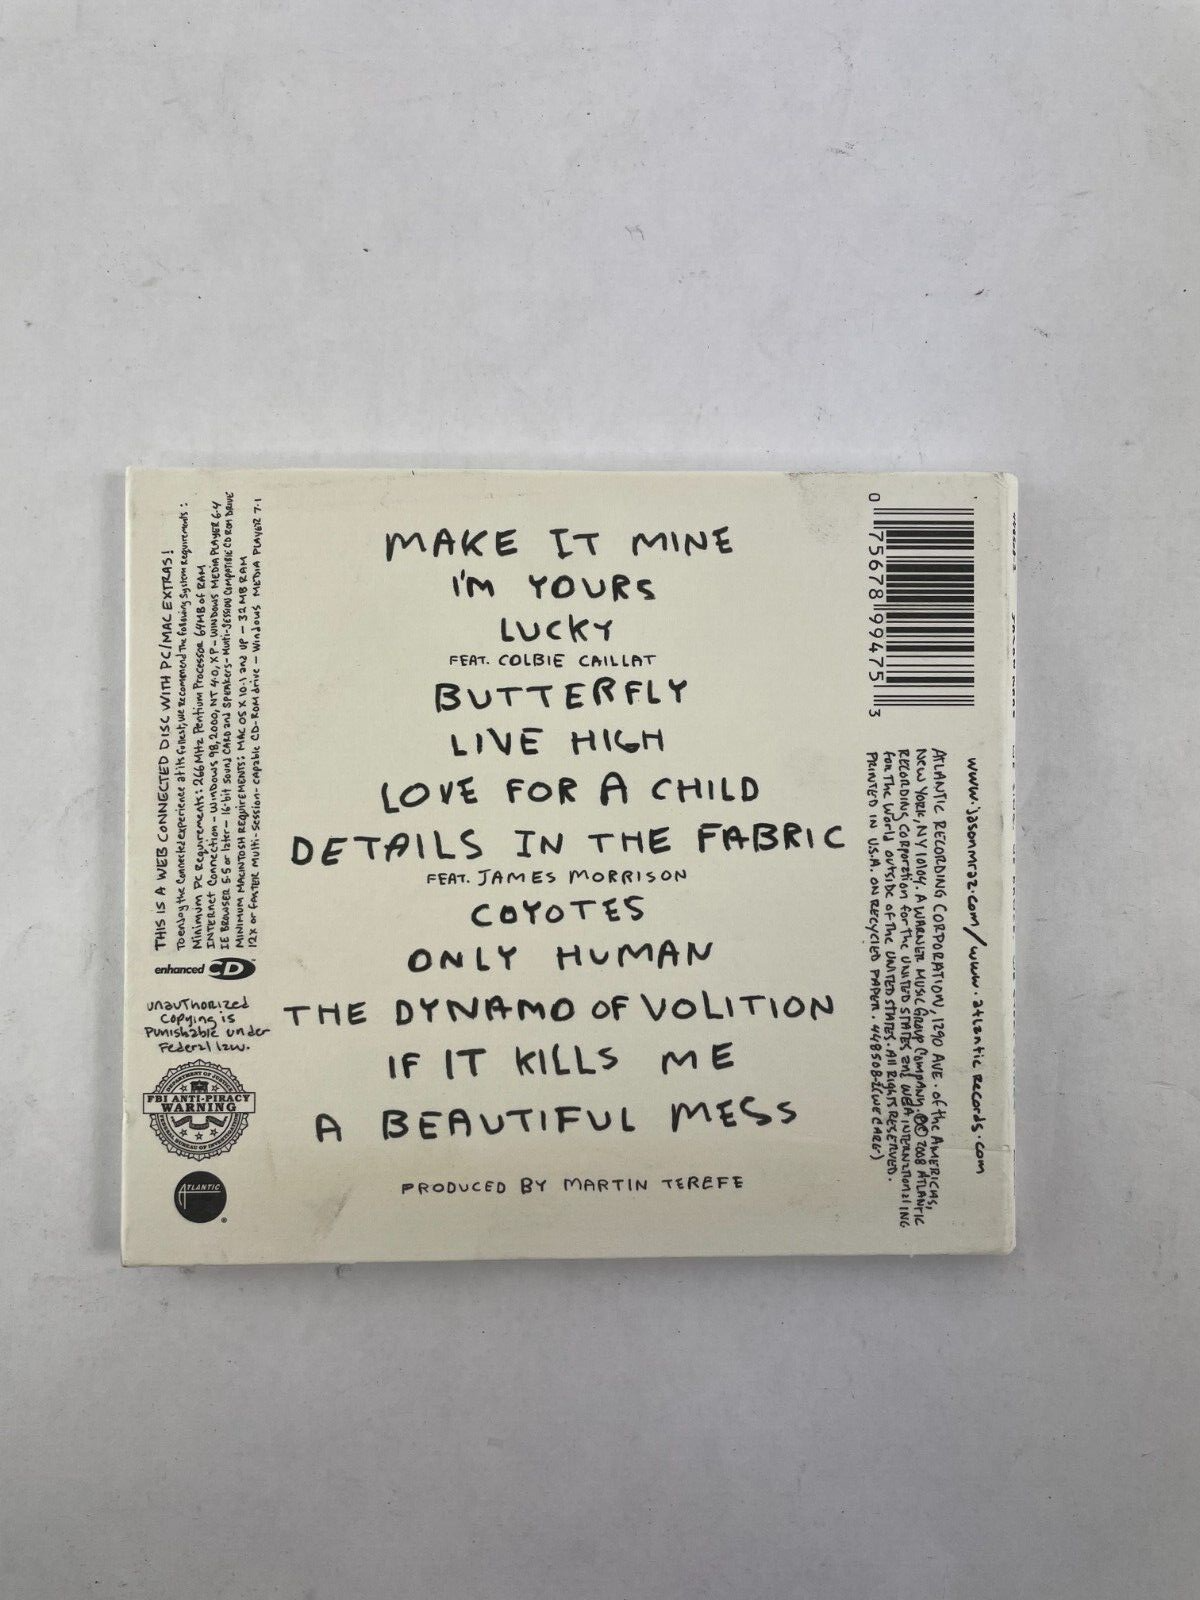 MAKE IT MINE
I'M YOURS
LUCKY
FEAT. COLBIE CAILLAT
BUTTERFLY
LIVE HIGH
LOVE FOR A CHILD
DETAILS IN THE FABRIC
FEAT. JAMES MORRISON
COYOTES
ONLY HUMAN
THE DYNAMO OF VOLITION
IF IT KILLS ME
A BEAUTIFUL MESS
PRODUCED BY MARTIN TEREFE
THIS IS A WEB CONNECTED DISC WITH PC/MAC EXTRAS!
To enjoy the Connected experience at its fullest, we recommend the following System Requirements:
Minimum PC Requirements: 266 MHz Pentium Processor 64MB of RAM
INTERNET Connection - WINDOWS 98, 2000, NT 4.0, XP - WINDOWS MEDIA PLAYER 6.4
IE BROWSER 5.5 or later - 16-bit SOUND CARD and SPEAKERS - Multi-Session Compatible CD ROM DRIVE
MINIMUM MACINTOSH REQUIREMENTS: MAC OS X 10.1 and UP - 32 MB RAM
12X or FASTER Multi-Session-capable CD-ROM drive - Windows MEDIA PLAYER 7.1
enhanced CD
unauthorized
copying is
punishable under
Federal law.
DEPARTMENT OF JUSTICE
FBI ANTI-PIRACY
WARNING
FEDERAL BUREAU OF INVESTIGATION
ATLANTIC
0 75678 99475 3
www.jasonmraz.com/www.atlantic records.com
ATLANTIC RECORDING CORPORATION, 1290 AVE. of the AMERICAS,
NEW YORK, NY 10104. A WARNER MUSIC GROUP COMPANY. ℗© 2008 ATLANTIC
RECORDING CORPORATION for the UNITED STATES and WEA INTERNATIONAL INC
for THE World outside of the UNITED STATES. All Rights RESERVED.
PRINTED IN U.S.A. ON RECYCLED PAPER. 448508-2 (WE CARE)